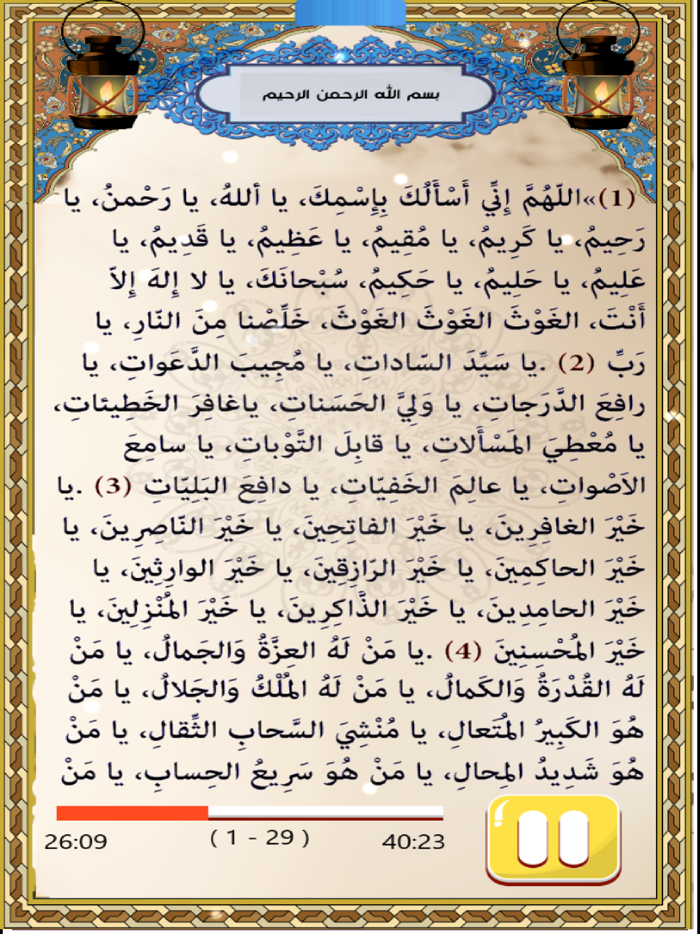 بسم الله الرحمن الرحيم
(1)»اللّهُمَّ إِنِّي أَسْأَلُكَ بِإِسْمِكَ، يا أَللهُ، يا رَحْمنُ، يا
رَحِيمُ، يا كَرِيمُ، يا مُقِيمُ، يا عَظِيمُ، يا قَدِيمُ، يا
عَلِيمُ، يا حَلِيمُ، يا حَكِيمُ، سُبْحانَكَ، يا لا إِلهَ إِلاّ
أَنْتَ، الغَوْثَ الغَوْثَ الغَوْثَ، خَلِّصْنا مِنَ النّارِ، يا
رَبِّ (2) .يا سَيِّدَ السّاداتِ، يا مُجِيبَ الدَّعَواتِ، يا
رافِعَ الدَّرَجاتِ، يا وَلِيَّ الحَسَناتِ، ياغافِرَ الخَطِيئاتِ،
يا مُعْطِيَ المَسْأَلاتِ، يا قابِلَ التَّوْباتِ، يا سامِعَ
الاَصْواتِ، يا عالِمَ الخَفِيّاتِ، يا دافِعَ البَلِيّاتِ (3) .يا
خَيْرَ الغافِرِينَ، يا خَيْرَ الفاتِحِينَ، يا خَيْرَ النّاصِرِينَ، يا
خَيْرَ الحاكِمِينَ، يا خَيْرَ الرّازِقِينَ، يا خَيْرَ الوارِثِينَ، يا
خَيْرَ الحامِدِينَ، يا خَيْرَ الذّاكِرِينَ، يا خَيْرَ المُنْزِلِينَ، يا
خَيْرَ المُحْسِنِينَ (4) .يا مَنْ لَهُ العِزَّةُ وَالجَمالُ، يا مَنْ
لَهُ القُدْرَةُ وَالكَمالُ، يا مَنْ لَهُ المُلْكُ وَالجَلالُ، يا مَنْ
هُوَ الكَبِيرُ المُتَعالِ، يا مُنْشِيَ السَّحابِ الثِّقالِ، يا مَنْ
هُوَ شَدِيدُ المِحالِ، يا مَنْ هُوَ سَرِيعُ الحِسابِ، يا مَنْ
26:09 ( 1 - 29 ) 40:23